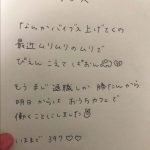 なんかバイブス上げてくの
最近ムリムリのムリで
ぴえんこえてぱおん
もうまぢ退職しか勝たんから
明日からは おうちカフェで
働くことにしました
いままで 397♡♡